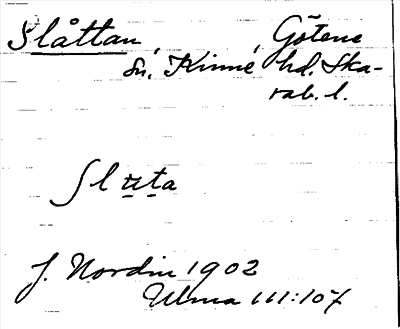 Slåttan, , Götene
sn, Kinne hd. Ska-
rab. l.
Slu̱ṯa
J. Nordin 1902
Ulma 111:107